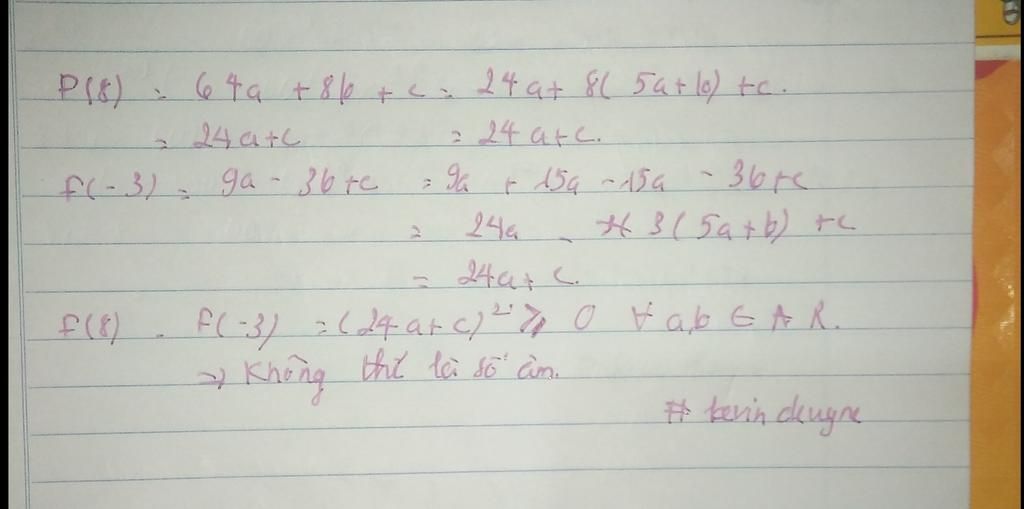 P(8) = 64a + 8b + c = 24a + 8(5a+b) + c.
= 24a+c = 24a+c.
f(-3) = 9a - 3b+c = 9a + 15a - 15a - 3b+c
= 24a - 3(5a+b) + c
= 24a+c.
f(8) . f(-3) = (24a+c)² ≥ 0 ∀ a,b ∈ R.
=> Không thể là số âm.
# kevin